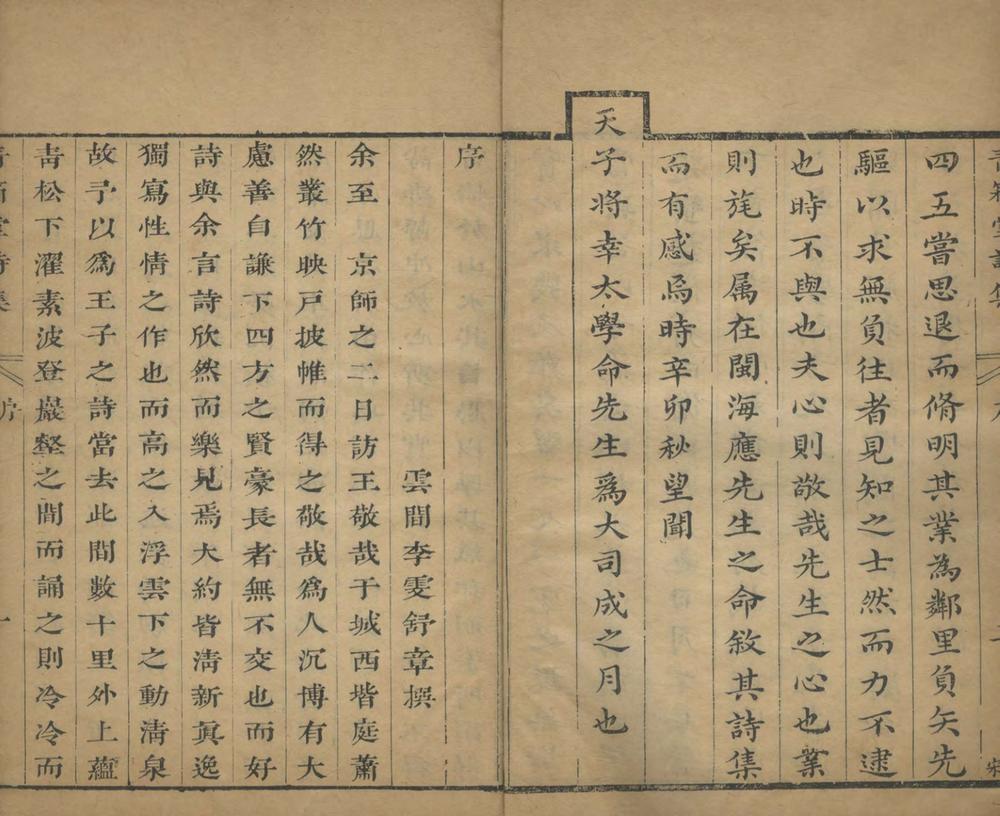 四五嘗思退而脩明其業為鄰里負矢先
驅以求無負往者見知之士然而力不逮
也時不與也夫心則敬哉先生之心也業
則旄矣属在閩海應先生之命敘其詩集
而有感焉時辛卯秋望聞
天
子將幸太學命先生爲大司成之月也
序
雲間李雯舒章撰
余至京師之二日訪王敬哉于城西堦庭蕭
然叢竹映戸披帷而得之敬哉爲人沉博有大
慮善自謙下四方之賢豪長者無不交也而好
詩與余言詩欣然而樂見焉大約皆淸新眞逸
獨寫性情之作也而高之入浮雲下之動淸泉
故予以爲王子之詩當去此間數十里外上蘊
靑松下濯素波登巖壑之間而誦之則冷冷而